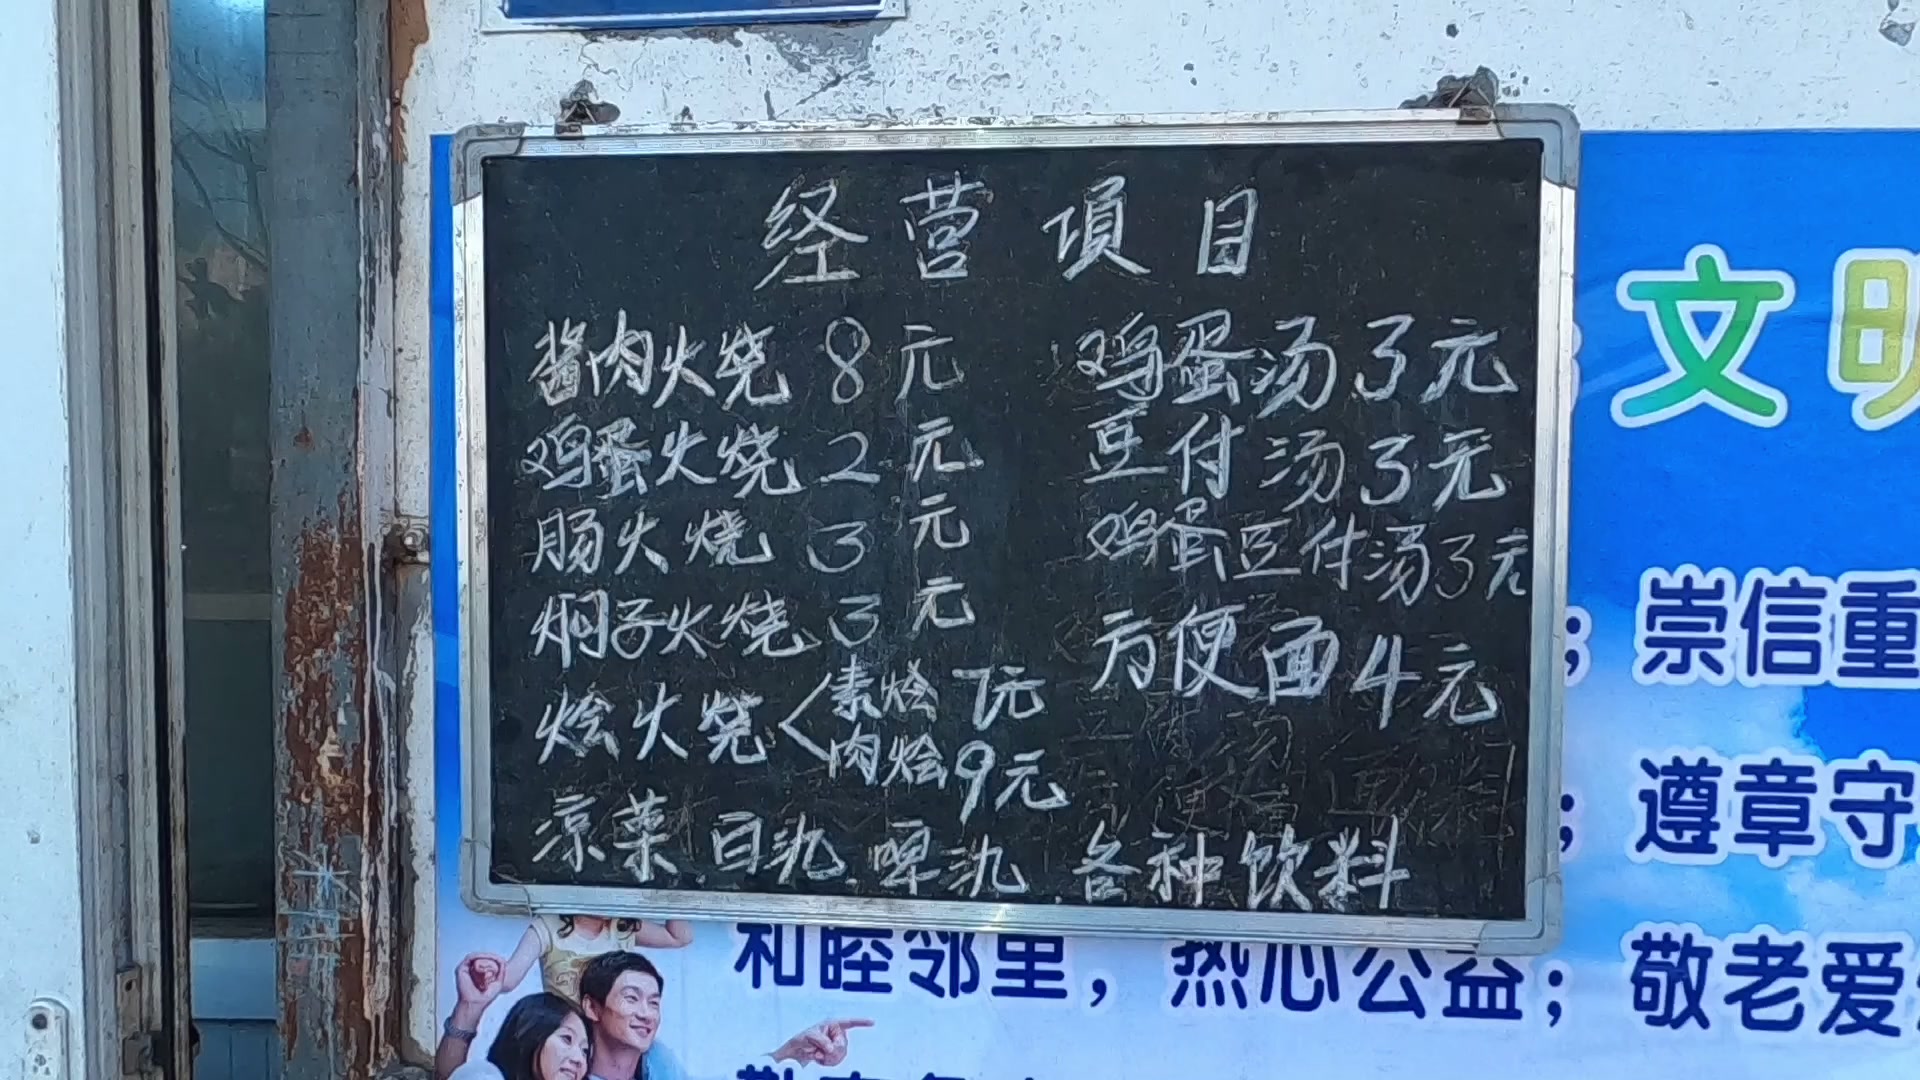 经营项目
酱肉火烧 8元
鸡蛋火烧 2元
肠火烧 3元
焖子火烧 3元
烩火烧
素烩 7元
肉烩 9元
鸡蛋汤 3元
豆付汤 3元
鸡蛋豆付汤 3元
方便面 4元
凉菜 白氿 啤氿 各种饮料
文明
崇信重
遵章守
和睦邻里，热心公益；敬老爱